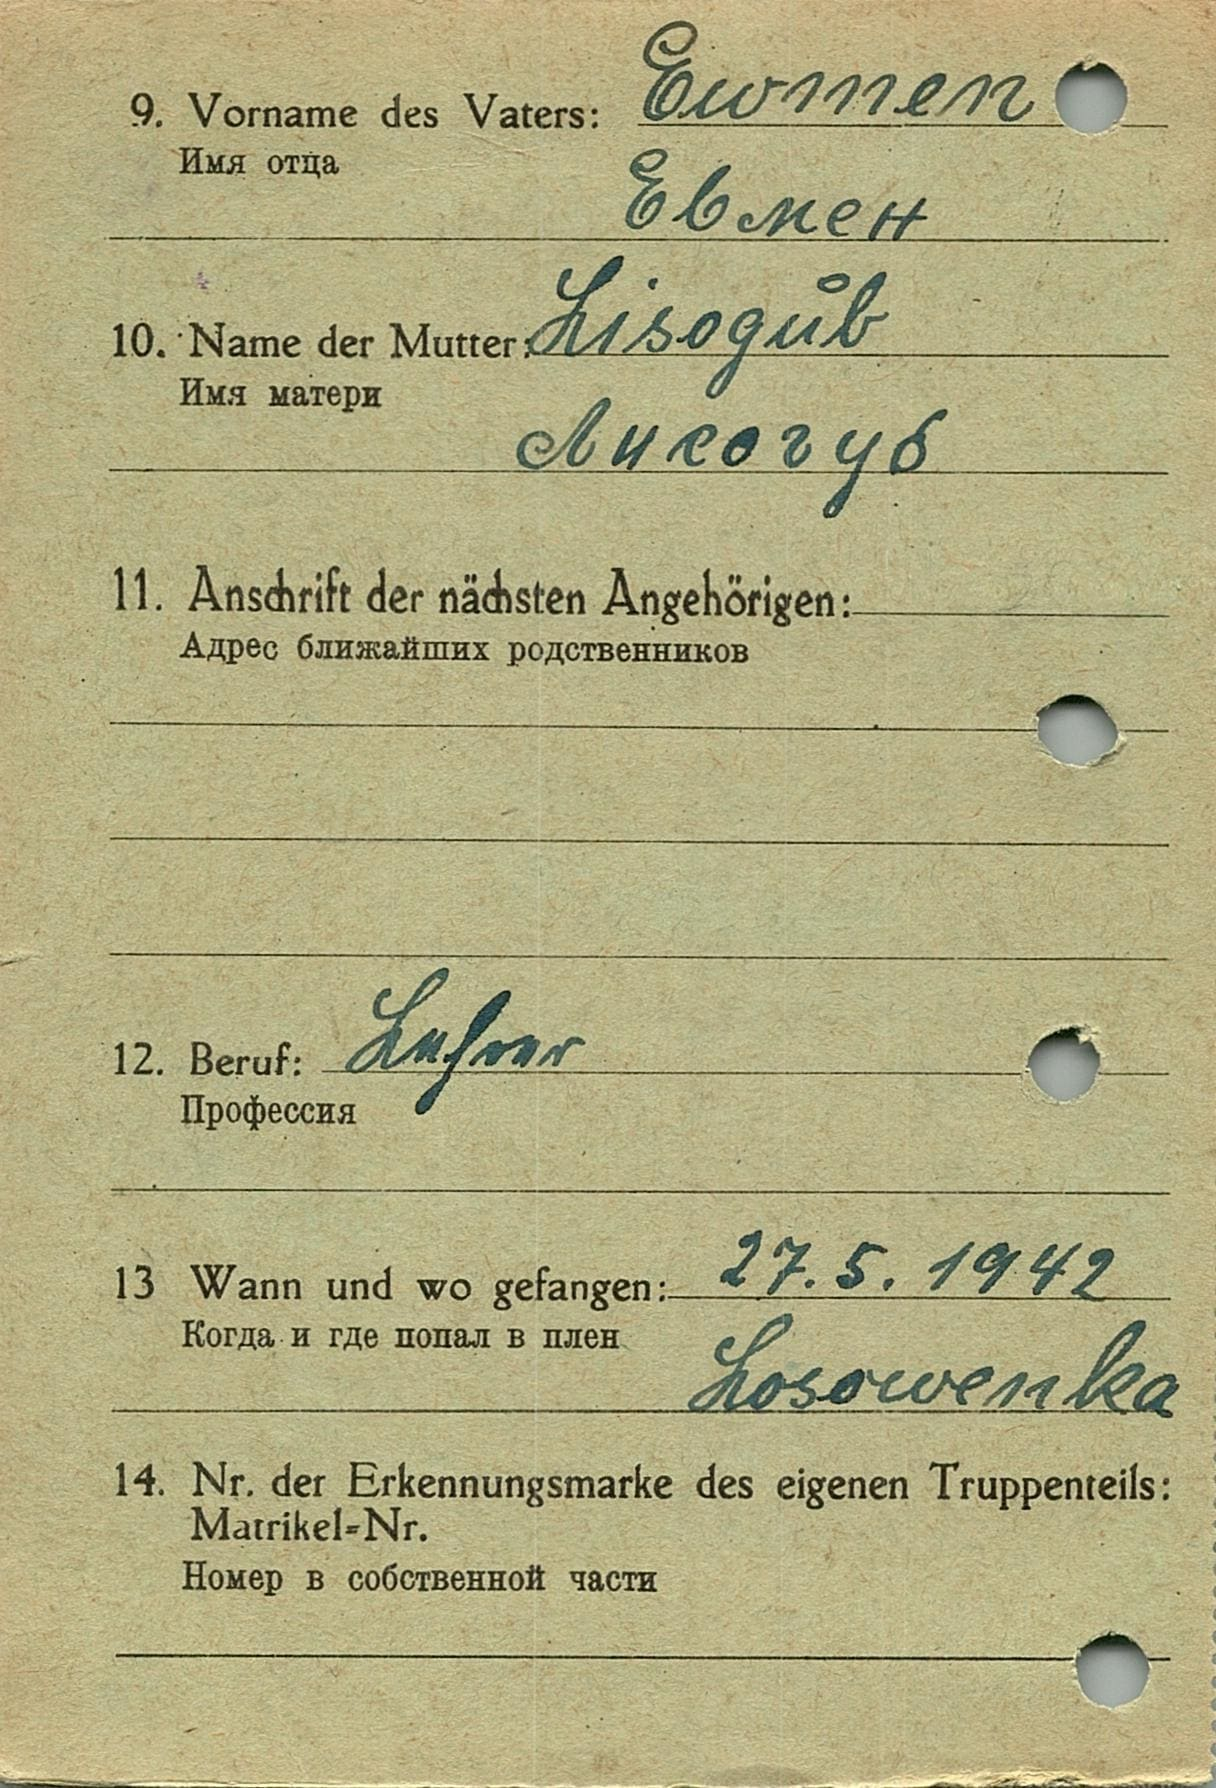 9. Vorname des Vaters: Ewmen
Имя отца
Евмен
10. Name der Mutter: Lisogub
Имя матери
Лисогуб
11. Anschrift der nächsten Angehörigen:
Адрес ближайших родственников
12. Beruf: Lehrer
Профессия
13 Wann und wo gefangen: 27.5.1942
Когда и где попал в плен
Losowenka
14. Nr. der Erkennungsmarke des eigenen Truppenteils:
Matrikel-Nr.
Номер в собственной части